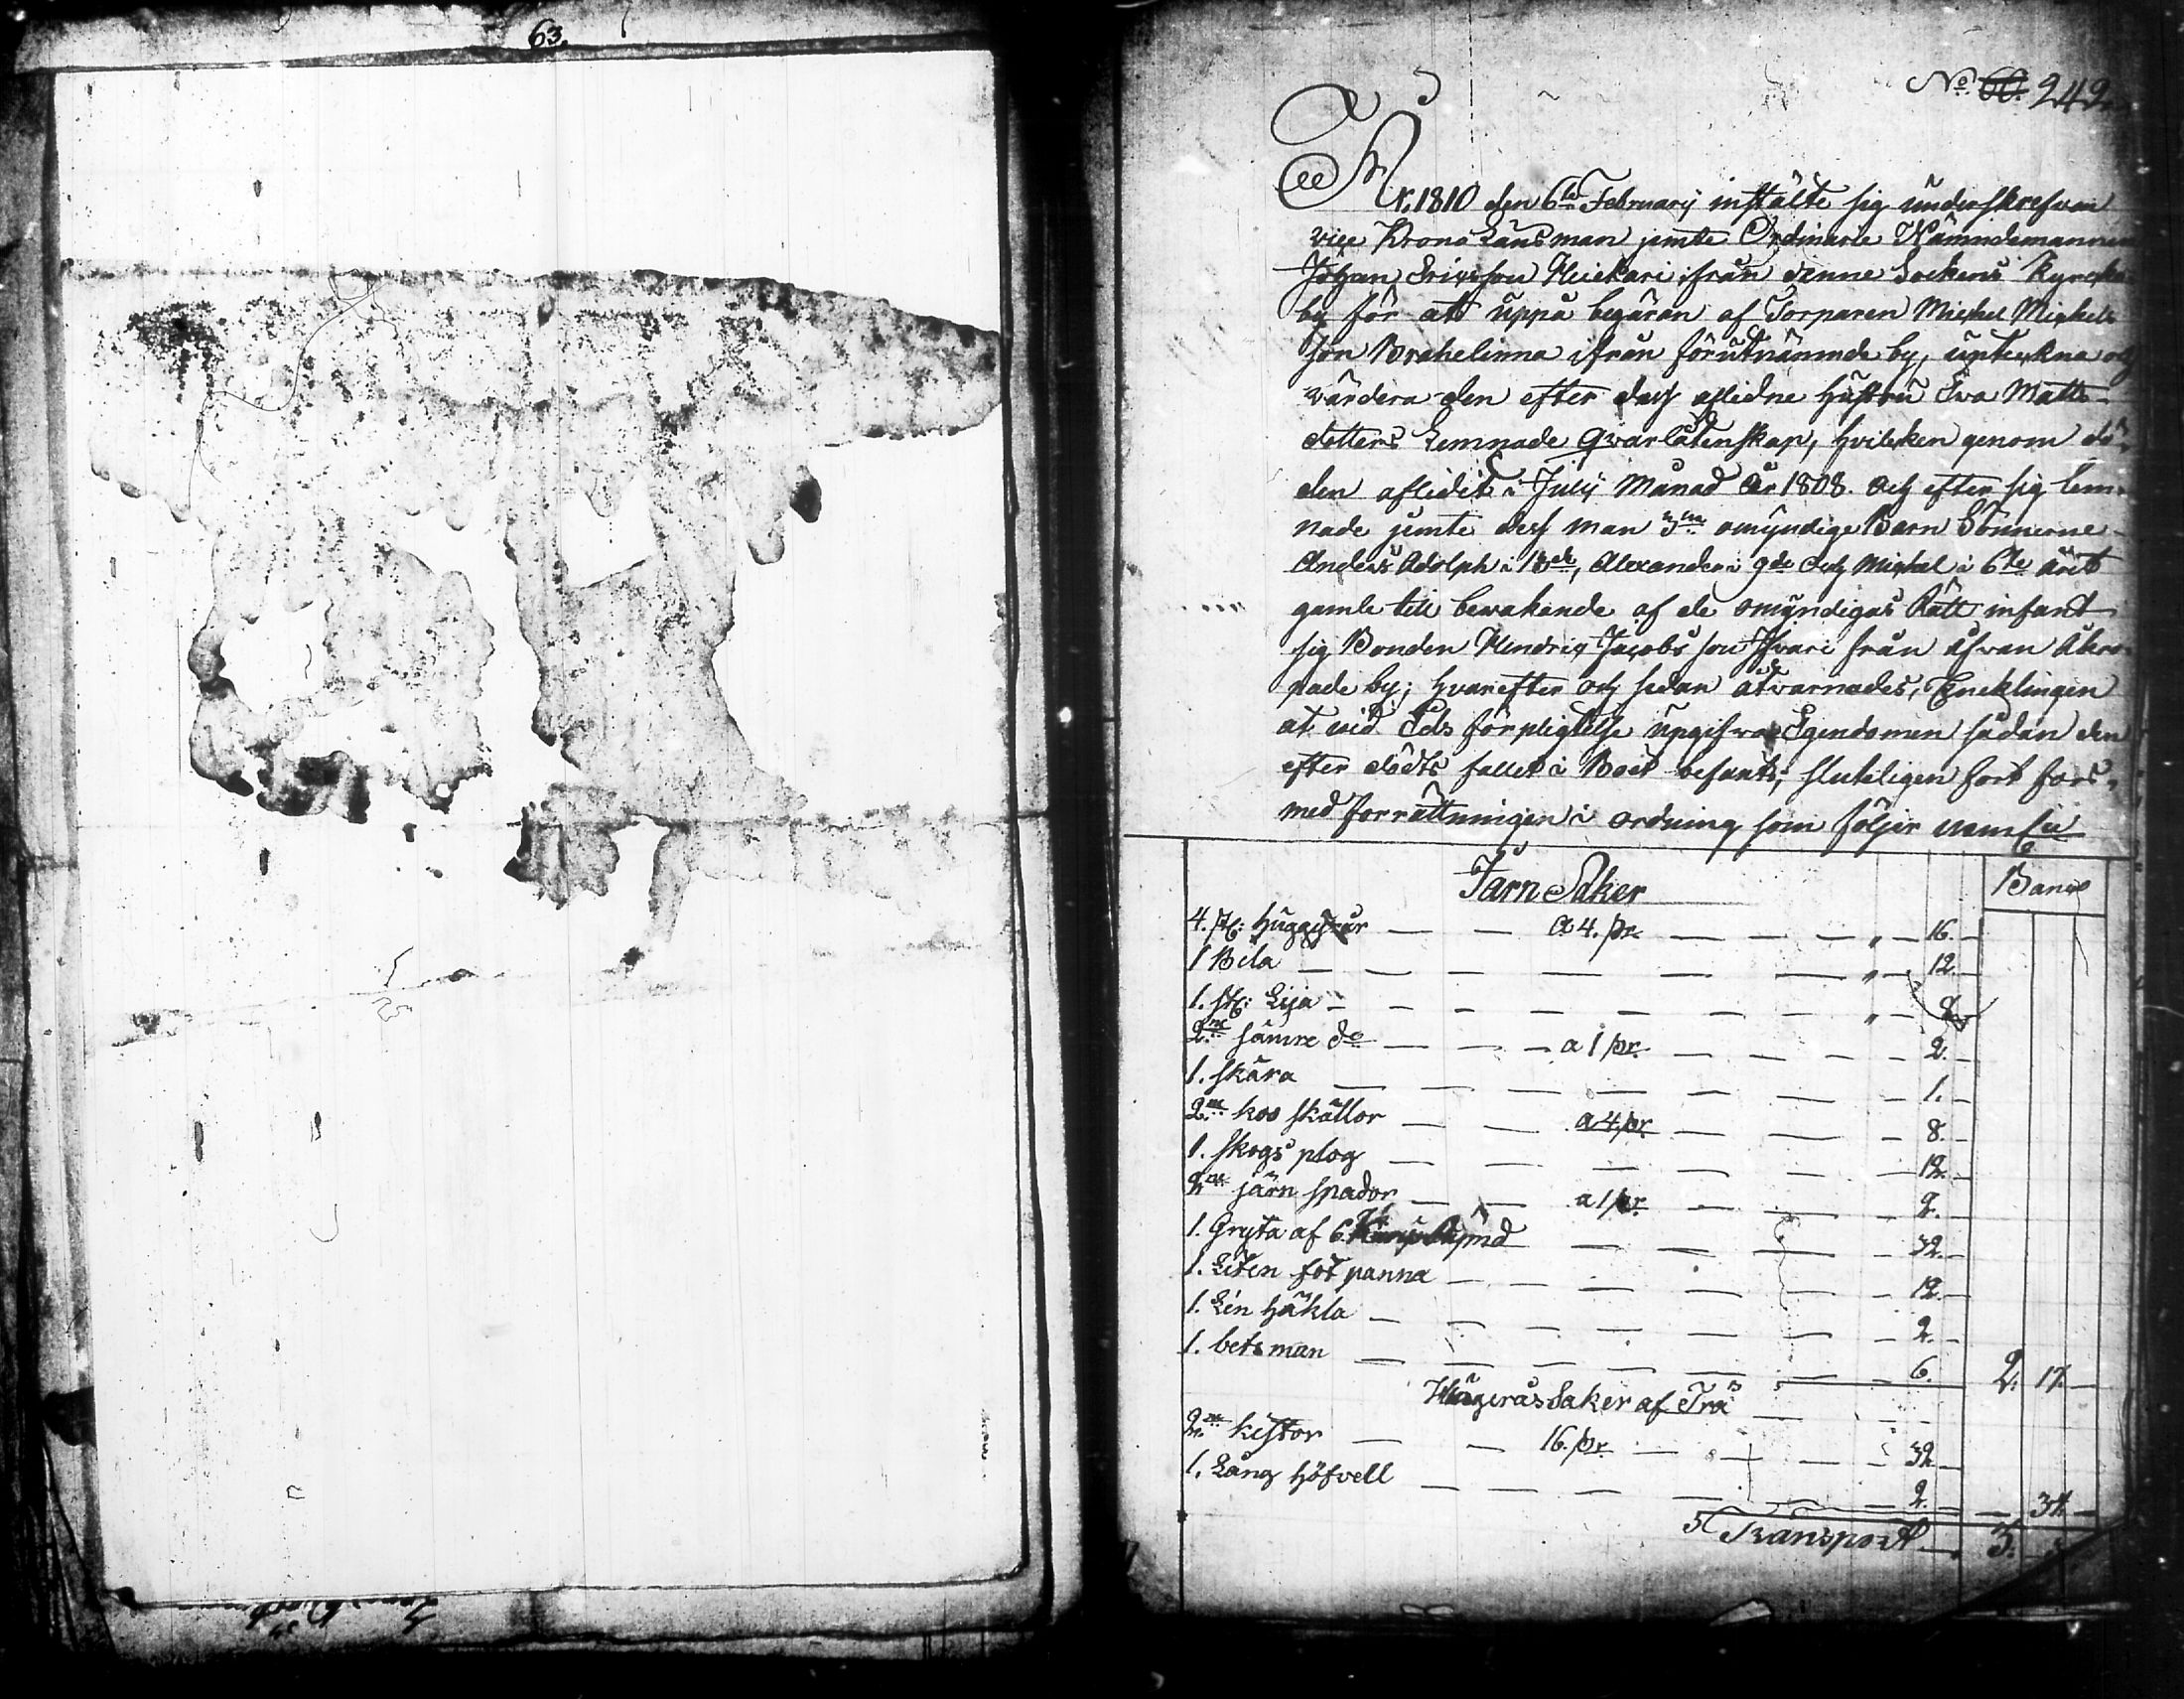 63.
No 60. 242.
År 1810 den 6te February instälte sig underskrefven
vice Krono Länsman jemte Ordinarie Nämndemannen
Johan Ericsson Heickari ifrån denne Sockens Kyrcko
by för att uppå begäran af Torparen Michel Michels
son Brahelinna ifrån förutnämnde by, upteckna och
värdera den efter dess aflidne hustru Eva Matts
dotters Lemnade Qvarlåtenskap, hvilcken genom dö-
den aflidit i July Månad År 1808. och efter sig lem-
nade jemte dess man 3ne omyndige Barn Sönnerne
Anders Adolph i 13de, Alexander i 9de och Michel i 6te året
gamle till bevakande af de omyndigas Rätt infant
sig Bonden Hendric Jacobs son från åfvan
by; hvarefter och sedan åtvarnades, Encklingen
at vid Eds förpligtelse upgifva Egendomen sådan den
efter döds fallet i Boet befants; sluteligen fort fors,
med forrättningen i ordning som följer nemln
Jarn Saker
Banco
4. st: a 4. sk. " 16.
1 Bila " 12.
1. st: Lija "
2ne sämre do a 1 sk. 2.
1. skära 1.
2ne koo skällor a 4 sk. 8.
1. skogs plog 12.
2ne järn spador a 1 sk. 2.
1. Gryta af 6 32.
1. Liten fot panna 12.
1. Lin häkla 2.
1. betsman 6. 2. 17.
Saker af Trä
2ne kistor 16. sk. 32.
1. Lång höfvell 2. 34.
Transport 3.